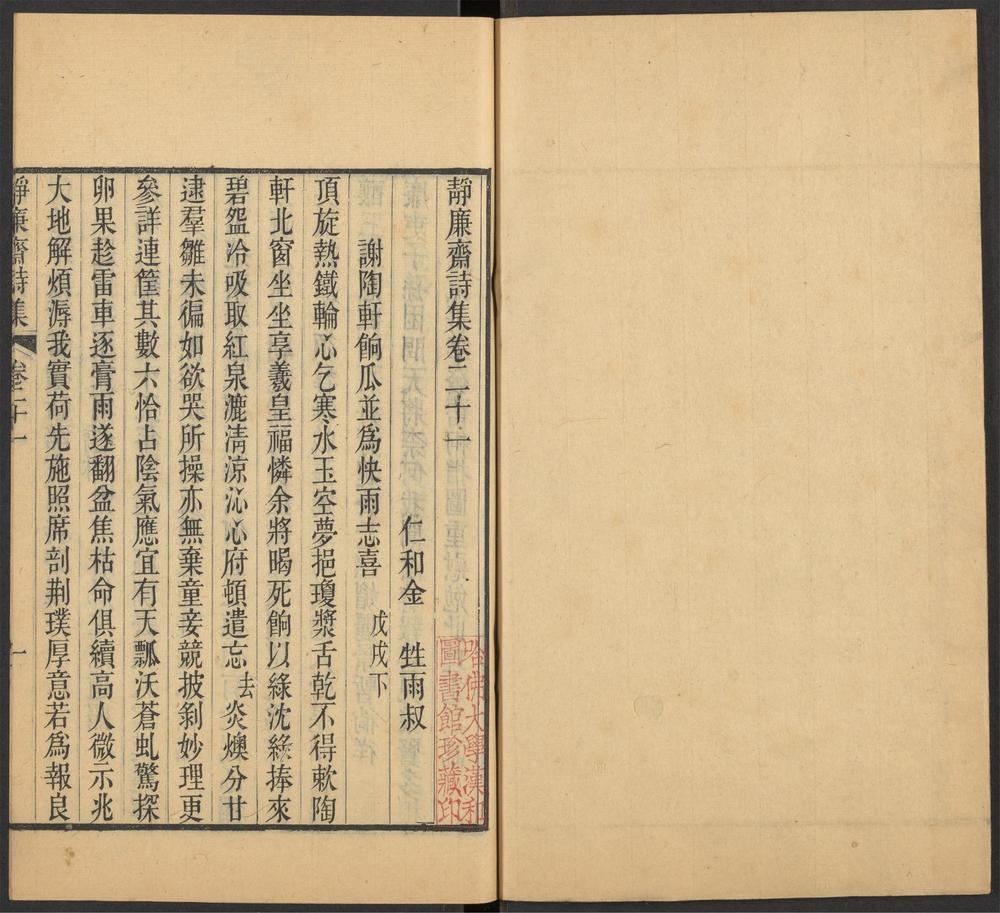 靜廉齋詩集卷二十一
仁和金 甡雨叔
謝陶軒餉瓜並爲快雨志喜 戊戌下
頂旋熱鐵輪心乞寒水玉空夢挹瓊漿舌乾不得歕陶
軒北窗坐坐享羲皇福憐余將暍死餉以綠沈綠捧來
碧盌冷吸取紅泉漉淸涼沁心府頓遣忘去炎燠分甘
逮羣雛未徧如欲哭所操亦無棄童妾競披剝妙理更
參詳連筐其數六恰占陰氣應宜有天瓢沃蒼虬驚探
卵果趁雷車逐膏雨遂翻盆焦枯命俱續高人微示兆
大地解煩溽我實荷先施照席剖荆璞厚意若爲報良
靜廉齋詩集 卷二十一 一
哈佛大學漢和
圖書館珍藏印